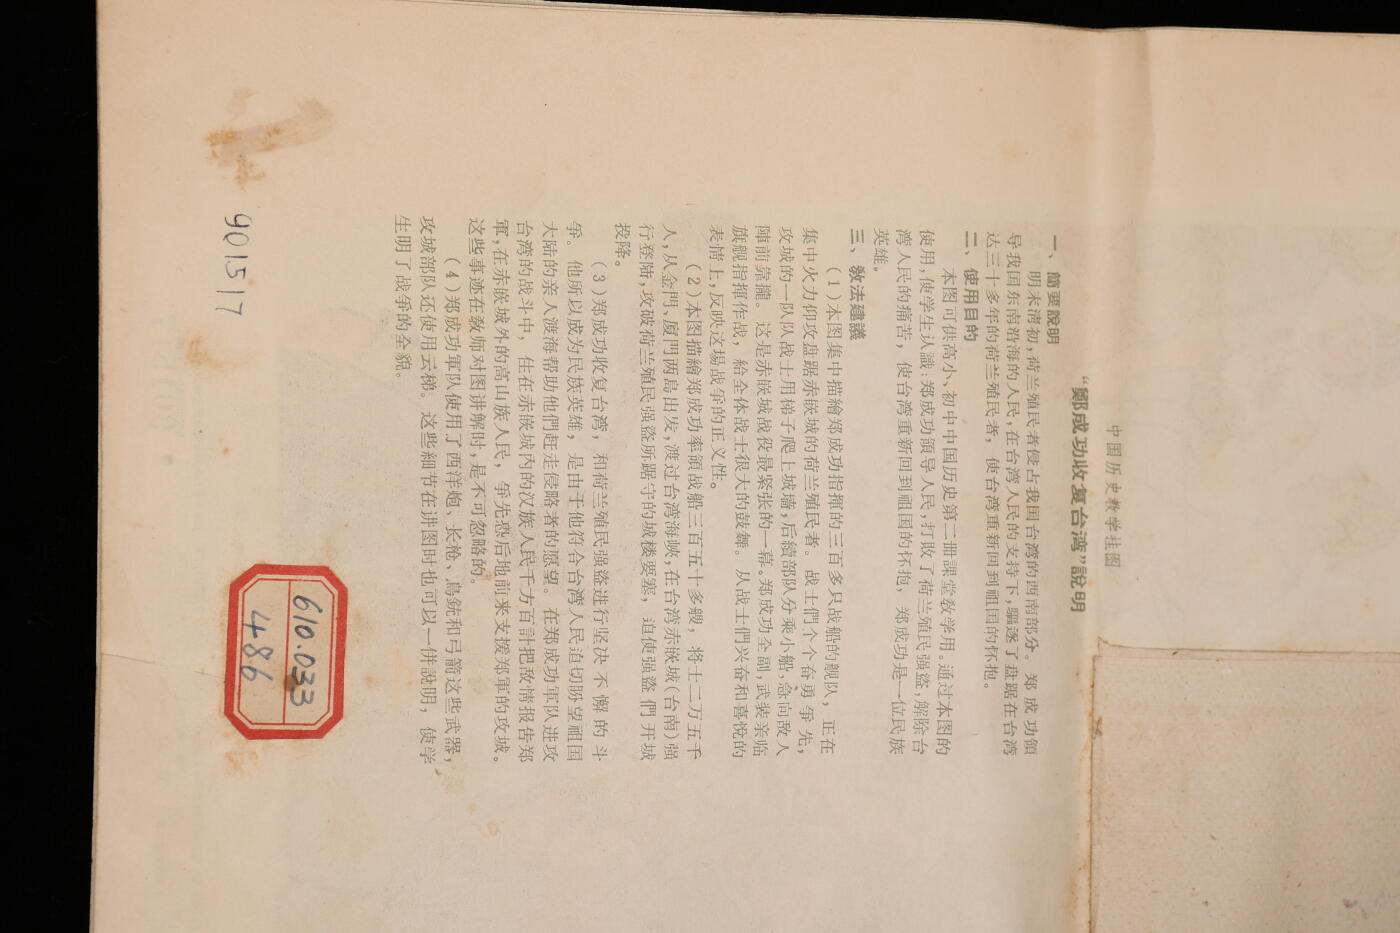 中国历史教学挂图
“鄭成功收复台湾”說明
一、簡要說明
明末清初，荷兰殖民者侵占我国台湾的西南部分。郑成功領
导我国东南沿海的人民，在台湾人民的支持下，驅逐了盘踞在台湾
达三十多年的荷兰殖民者，使台湾重新回到祖国的怀抱。
二、使用目的
本图可供高小、初中中国历史第二册課堂教学用。通过本图的
使用，使学生认識：郑成功領导人民，打敗了荷兰殖民强盜，解除台
湾人民的痛苦，使台湾重新回到祖国的怀抱，郑成功是一位民族
英雄。
三、教法建議
（1）本图集中描繪郑成功指揮的三百多只战船的舰队，正在
集中火力仰攻盘踞赤嵌城的荷兰殖民者。战士們个个奋勇争先，
攻城的一队队战士用梯子爬上城墙，后續部队分乘小船，急向敌人
陣前靠攏。这是赤嵌城战役最紧张的一幕。郑成功全副武装亲临
旗舰指揮作战，給全体战士很大的鼓舞。从战士們兴奋和喜悅的
表情上，反映这場战争的正义性。
（2）本图描繪郑成功率領战船三百五十多艘，将士二万五千
人，从金門、廈門两島出发，渡过台湾海峽，在台湾赤嵌城（台南）强
行登陆，攻破荷兰殖民强盜所踞守的城楼要塞，迫使强盜們开城
投降。
（3）郑成功收复台湾，和荷兰殖民强盜进行坚决不懈的斗
争。他所以成为民族英雄，是由于他符合台湾人民迫切盼望祖国
大陆的亲人渡海帮助他們赶走侵略者的愿望。在郑成功軍队进攻
台湾的战斗中，住在赤嵌城內的汉族人民千方百計把敌情报告郑
軍，在赤嵌城外的高山族人民，争先恐后地前来支援郑軍的攻城。
这些事迹在教师对图讲解时，是不可忽略的。
（4）郑成功軍队使用了西洋炮、长枪、鳥銃和弓箭这些武器，
攻城部队还使用云梯。这些細节在讲图时也可以一併說明，使学
生明了战争的全貌。
901517
610.033
486